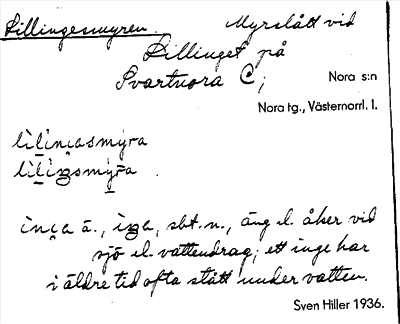 Lillingesmyren. Myrslått vid
Lillinget på
Svartnora C;
Nora s:n
Nora tg., Västernorrl. l.
lìlinc̣asmýra
lìliṉʒsmýr̄a
inc̣a ä., iṉʒa, sbt. n., äng el. åker vid
sjö el. vattendrag; ett inge har
i äldre tid ofta stått under vatten.
Sven Hiller 1936.